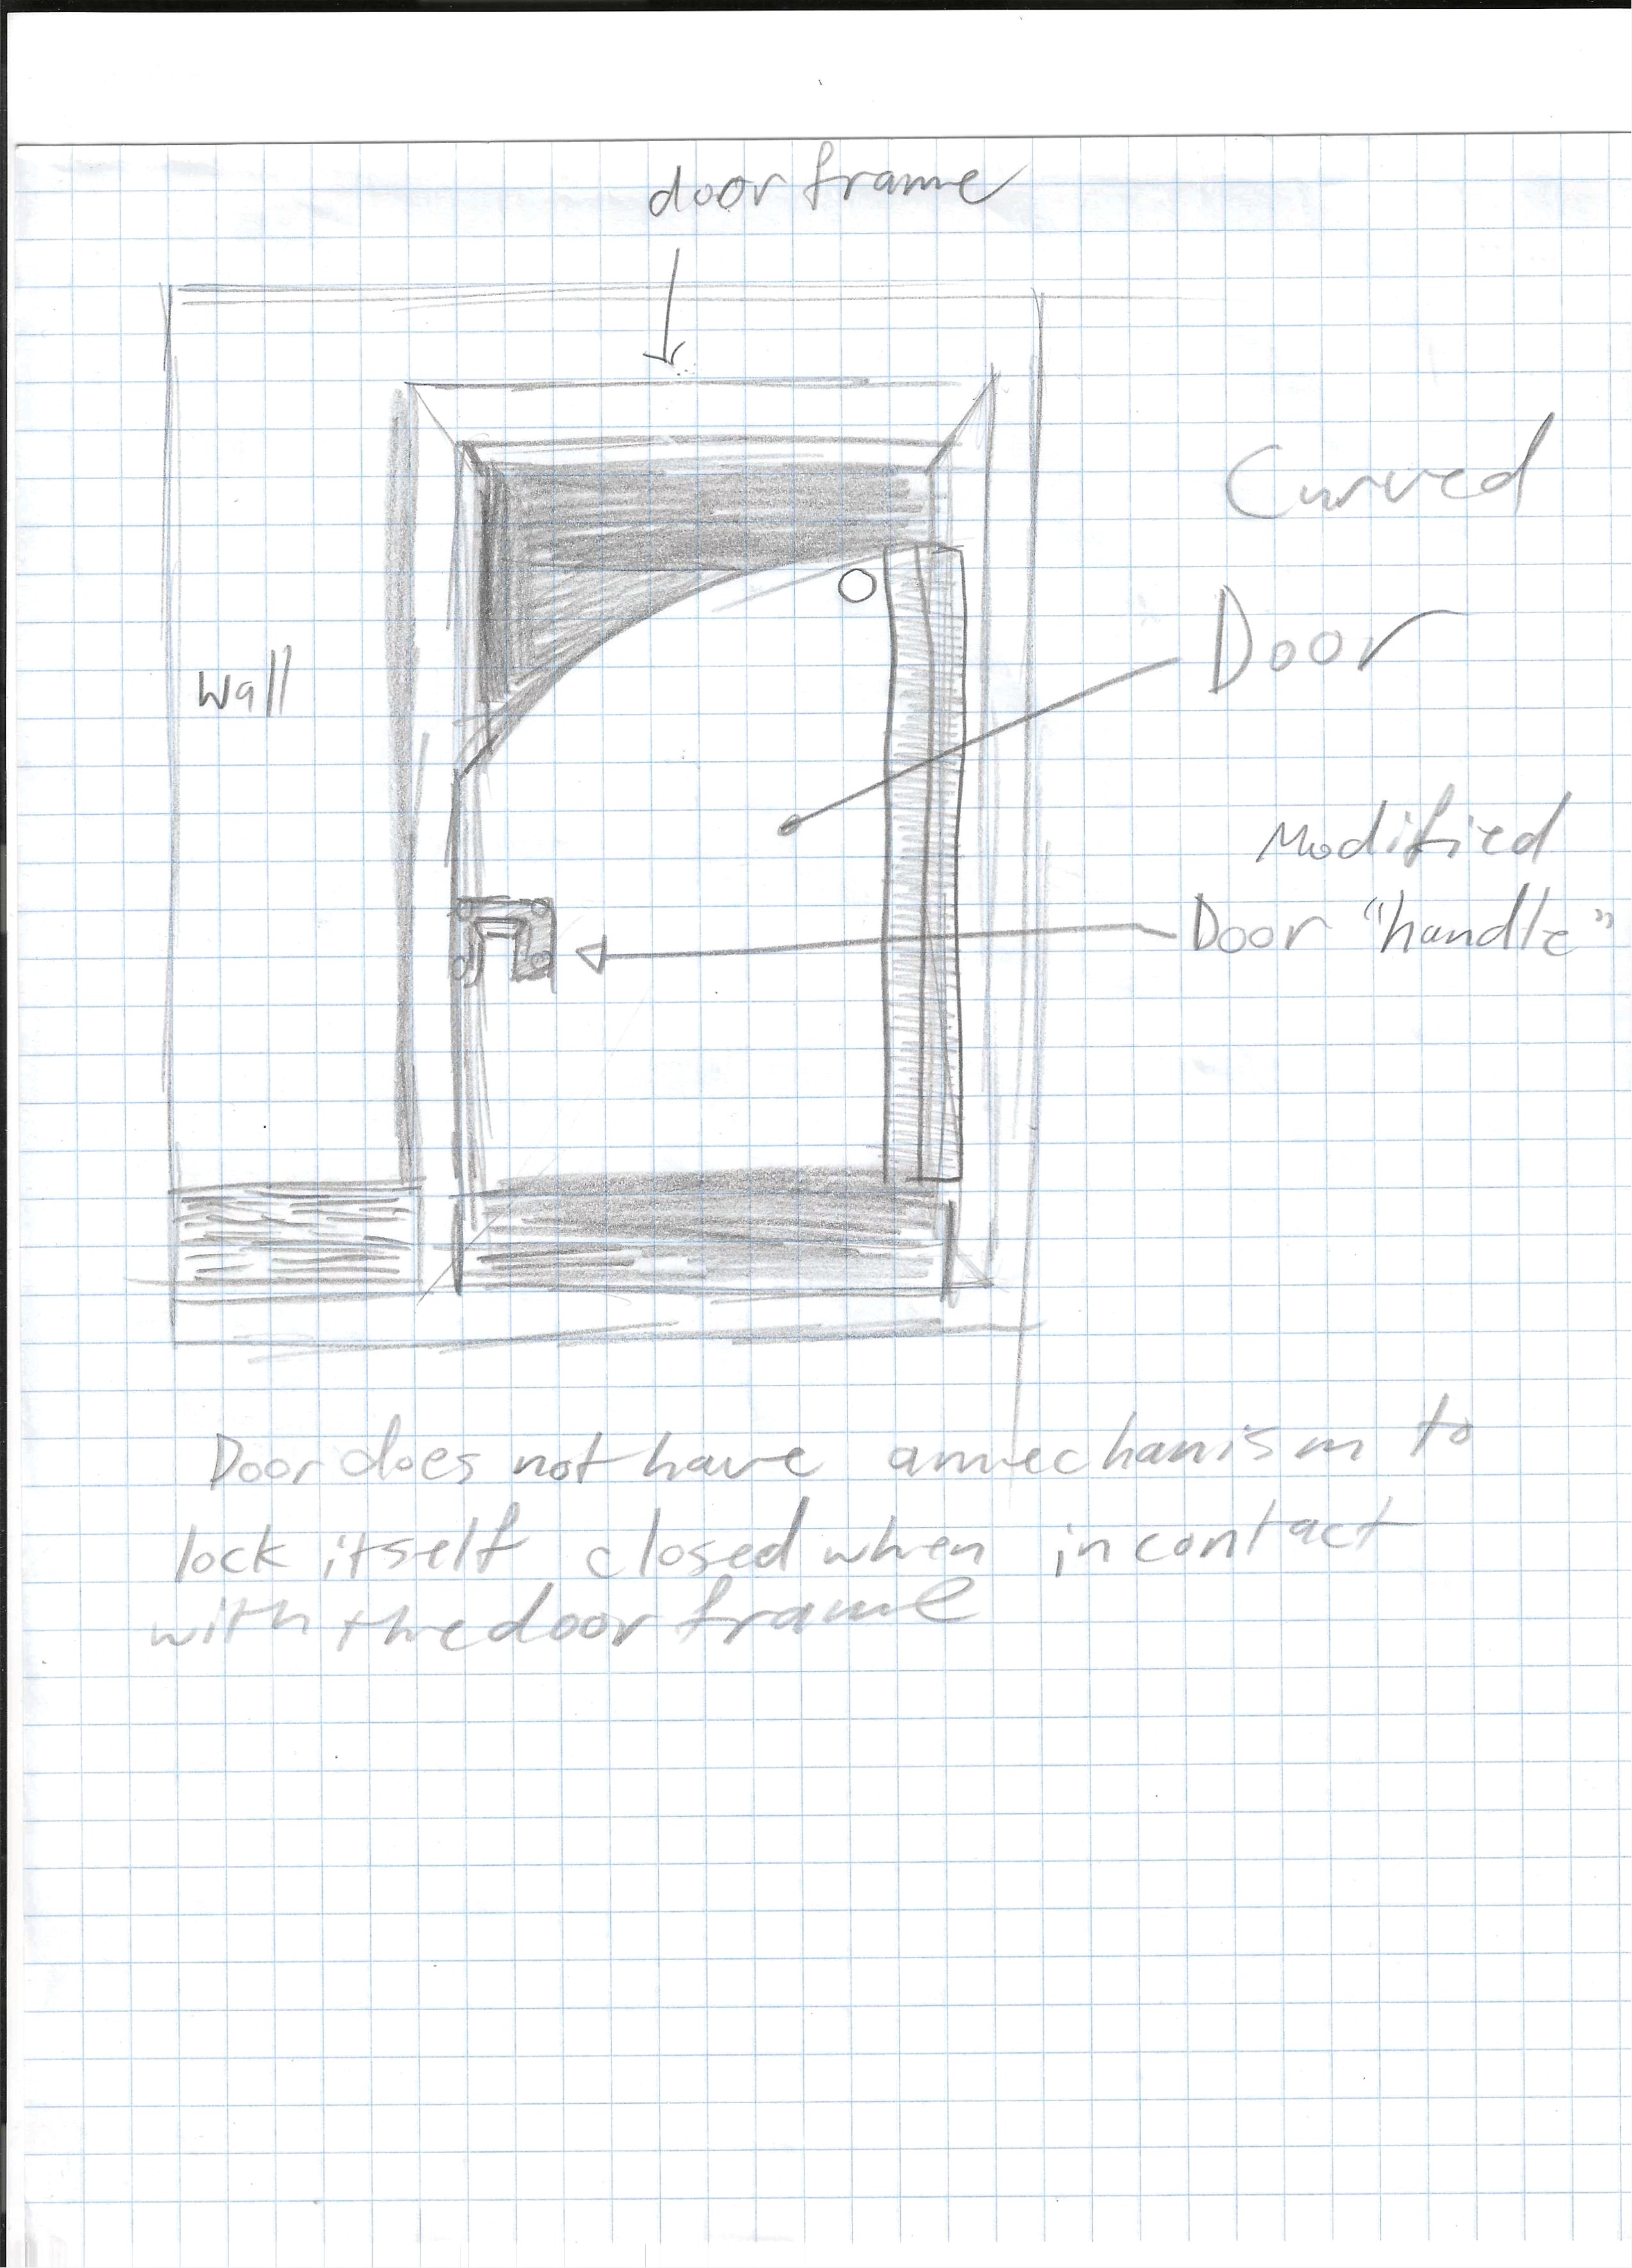 door frame
Curved
Door
wall
Modified
Door "handle"
Door does not have a mechanism to
lock itself closed when in contact
with the door frame